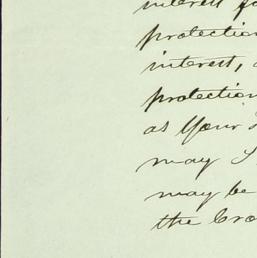 interest fo
protection
interest,
protection
as Your
may
may be
the Cro